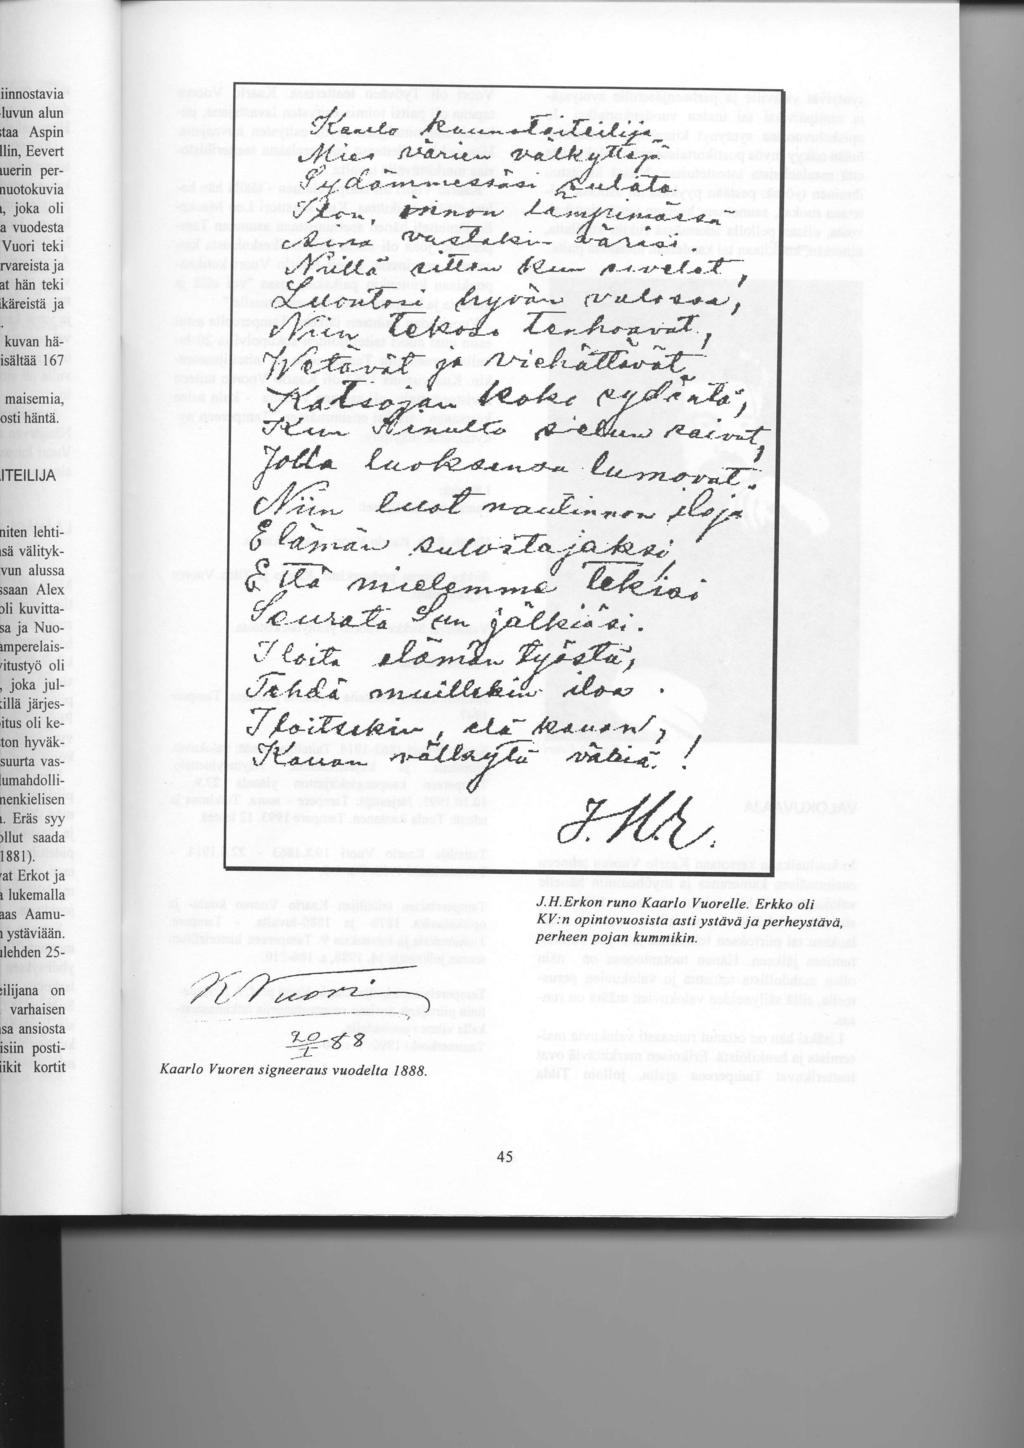 iinnostavia
-luvun alun
staa Aspin
llin, Eevert
auerin per-
nuotokuvia
, joka oli
a vuodesta
Vuori teki
rvareista ja
at hän teki
ikäreistä ja
.
kuvan hä-
isältää 167
maisemia,
osti häntä.
ITEILIJA
niten lehti-
sä välityk-
vun alussa
ssaan Alex
oli kuvitta-
sa ja Nuo-
amperelais-
vitustyö oli
, joka jul-
killä järjes-
itus oli ke-
ton hyväk-
suurta vas-
lumahdolli-
menkielisen
. Eräs syy
ollut saada
1881).
vat Erkot ja
lukemalla
aas Aamu-
ystäviään.
ulehden 25-
eilijana on
varhaisen
sa ansiosta
isiin posti-
iikit kortit
Kaarlo kaunotaiteilija
Mies värien välkyttäjä
Sydämmessäsi sulata
Ilon, innon lämpimässä
Aina vastakin väriäsi.
Niillä sitten kun sivelet,
Luontosi hyvän valossa,
Niin tekosi tenhoavat,
Wetävät ja viehättävät
Katsojan koko sydäntä,
Kun Ainulta sielun saivat,
Jolla luoksensa lumovat.
Niin luot nautinnon iloja
Elämän sulostajaksi,
Että mielemme tekisi
Seurata Sun jälkiäsi.
Iloita elämän työstä,
Tehdä muillekin iloa.
Iloitsekin, elä kauan,
Kauan välkytä väriä!
J.H.E.
J.H.Erkon runo Kaarlo Vuorelle. Erkko oli
KV:n opintovuosista asti ystävä ja perheystävä,
perheen pojan kummikin.
K Vuori
20 88
I
Kaarlo Vuoren signeeraus vuodelta 1888.
45